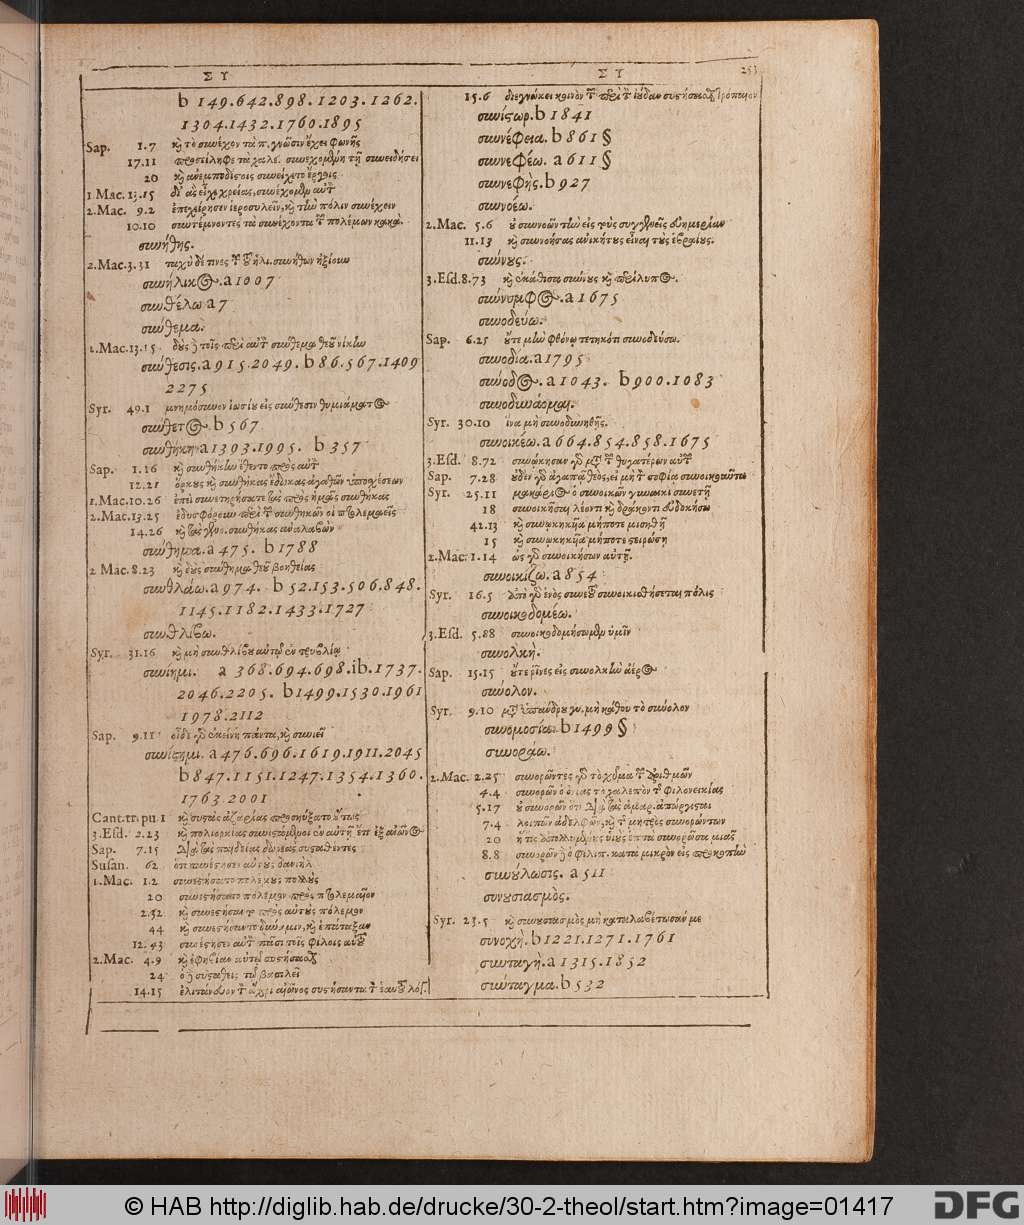 Σ Υ
b 149.642.898.1203.1262.
1304.1432.1760.1895
Sap. 1.7 καὶ τὸ συνέχον τὰ π. γνῶσιν ἔχει φωνῆς
17.11 συνεχομένη τῇ συνειδήσει
20
1.Mac.13.15 δι' ἃς εἶχε χρείας, συνέχομεν αὐτὸν
2.Mac. 9.2 ἐπεχείρησεν ἱεροσυλεῖν, καὶ τὴν πόλιν συνέχειν
10.10 συντέμνοντες τὰ συνέχοντα τῶν πολέμων κακὰ.
συνήθης.
2.Mac.3.31 ταχὺ δέ τινες τῶν τοῦ ἡλι. συνήθων ἠξίουν
συνήλικος.a 1007
συνθέλω a 7
σύνθεμα.
1.Mac.13.15
σύνθεσις.a 915.2049. b 86.567.1409
2275
Syr. 49.1 μνημόσυνον ἰωσίου εἰς σύνθεσιν θυμιάματος
σύνθετος b 567
συνθήκη a 1393.1995. b 357
Sap. 1.16 καὶ συνθήκην ἔθεντο πρὸς αὐτὸν
12.21 ὅρκους καὶ συνθήκας ἔδωκας ἀγαθῶν ὑποσχέσεων
1.Mac.10.26 ἐπεὶ συνετηρήσατε τὰς πρὸς ἡμᾶς συνθήκας
2.Mac.13.25 ἐδυσφόρουν περὶ τῶν συνθηκῶν οἱ πτολεμαεῖς
14.26 συνθήκας ἀναλαβὼν
σύνθημα.a 475. b 1788
2 Mac.8.23 καὶ δοὺς σύνθημα θεοῦ βοηθείας
συνθλάω.a 974. b 52.153.506.848.
1145.1182.1433.1727
συνθλίβω.
Syr. 31.16 καὶ μὴ συνθλίβου αὐτῷ ἐν τρυβλίῳ
συνίημι. a 368.694.698.ib.1737.
2046.2205. b 1499.1530.1961
1978.2112
Sap. 9.11 οἶδε γὰρ ἐκείνη πάντα, καὶ συνιεῖ
συνίστημι. a 476.696.1619.1911.2045
b 847.1151.1247.1354.1360.
1763 2001
Cant.tr.pu.1 καὶ συστὰς ἀζαρίας προσηύξατο οὕτως
3.Esd. 2.23 καὶ πολιορκίας συνιστάμενοι ἐν αὐτῇ ἔτι ἐξ αἰῶνος
Sap. 7.15 διὰ τὰς παιδείας δωρεὰς συσταθέντες
Susan. 62 δανιὴλ
1.Mac. 1.2 συνεστήσατο πολέμους πολλοὺς
20 συνεστήσατο πόλεμον πρὸς πτολεμαῖον
2.32 καὶ συνεστήσαντο πρὸς αὐτοὺς πόλεμον
44 καὶ συνεστήσαντο δύναμιν, καὶ ἐπάταξαν
12.43 συνέστησεν αὐτὸν πᾶσι τοῖς φίλοις αὐτοῦ
2.Mac. 4.9
24 ὁ δὲ συσταθεὶς τῷ βασιλεῖ
14.15 ἐλιτάνευον τὸν ἄχρι αἰῶνος συστήσαντα τὸν ἑαυτοῦ λό.
Σ Υ
15.6
συνίστωρ.b 1841
συννέφεια. b 861 §
συννεφέω. a 611 §
συννεφὴς.b 927
συννοέω.
2.Mac. 5.6 οὐ συννοῶν τὴν εἰς τοὺς συγγενεῖς εὐημερίαν
11.13 καὶ συννοήσας ἀνικήτους εἶναι τοὺς ἑβραίους.
σύννους.
3.Esd.8.73 καὶ ἐκάθισα σύννους καὶ περίλυπος.
σύννυμφος.a 1675
συνοδεύω.
Sap. 6.25 οὔτε μὴν φθόνῳ τετηκότι συνοδεύσω.
συνοδία.a 1795
σύνοδος.a 1043. b 900.1083
συνοδυνάομαι.
Syr. 30.10 ἵνα μὴ συνοδυνηθῇς.
συνοικέω.a 664.854.858.1675
3.Esd. 8.72 συνῴκησαν γὰρ μετὰ τῶν θυγατέρων αὐτῶν
Sap. 7.28 οὐδὲν γὰρ ἀγαπᾷ θεὸς, εἰ μὴ τὸν σοφίᾳ συνοικοῦντα
Syr. 25.11 μακάριος ὁ συνοικῶν γυναικὶ συνετῇ
18 συνοικῆσαι λέοντι καὶ δράκοντι εὐδοκήσω
42.13 καὶ συνῳκηκυῖα μήποτε μισηθῇ
15 καὶ συνῳκηκυῖα μήποτε στειρώσῃ
2.Mac. 1.14 ὡς γὰρ συνοικήσων αὐτῇ.
συνοικίζω.a 854
Syr. 16.5 ἀπὸ γὰρ ἑνὸς συνετοῦ συνοικισθήσεται πόλις
συνοικοδομέω.
3.Esd. 5.88 συνοικοδομήσωμεν ὑμῖν
συνολκὴ.
Sap. 15.15 οὔτε ῥῖνες εἰς συνολκὴν ἀέρος
σύνολον.
Syr. 9.10 μετὰ ὑπάνδρου γυ. μὴ κάθου τὸ σύνολον
συνομοσία. b 1499 §
συνοράω.
2.Mac. 2.25 συνορῶντες γὰρ τὸ χύμα τῶν ἀριθμῶν
4.4 συνορῶν ὁ ὀνίας τὸ χαλεπὸν τῆς φιλονεικίας
5.17 οὐ συνορῶν ὅτι διὰ τὰς ἁμαρ. ἀπώργισται
7.4 λοιπῶν ἀδελφῶν, καὶ τῆς μητρὸς συνορώντων
20 υἱοὺς ἑπτὰ συνορῶσα μιᾶς
8.8 συνορῶν δὲ ὁ φίλιπ. κατὰ μικρὸν εἰς προκοπὴν
συνούλωσις. a 511
συνουσιασμὸς.
Syr. 23.5 καὶ συνουσιασμὸς μὴ καταλαβέτωσάν με
συνοχὴ.b 1221.1271.1761
συνταγὴ.a 1315.1852
σύνταγμα.b 532
© HAB http://diglib.hab.de/drucke/30-2-theol/start.htm?image=01417
DFG